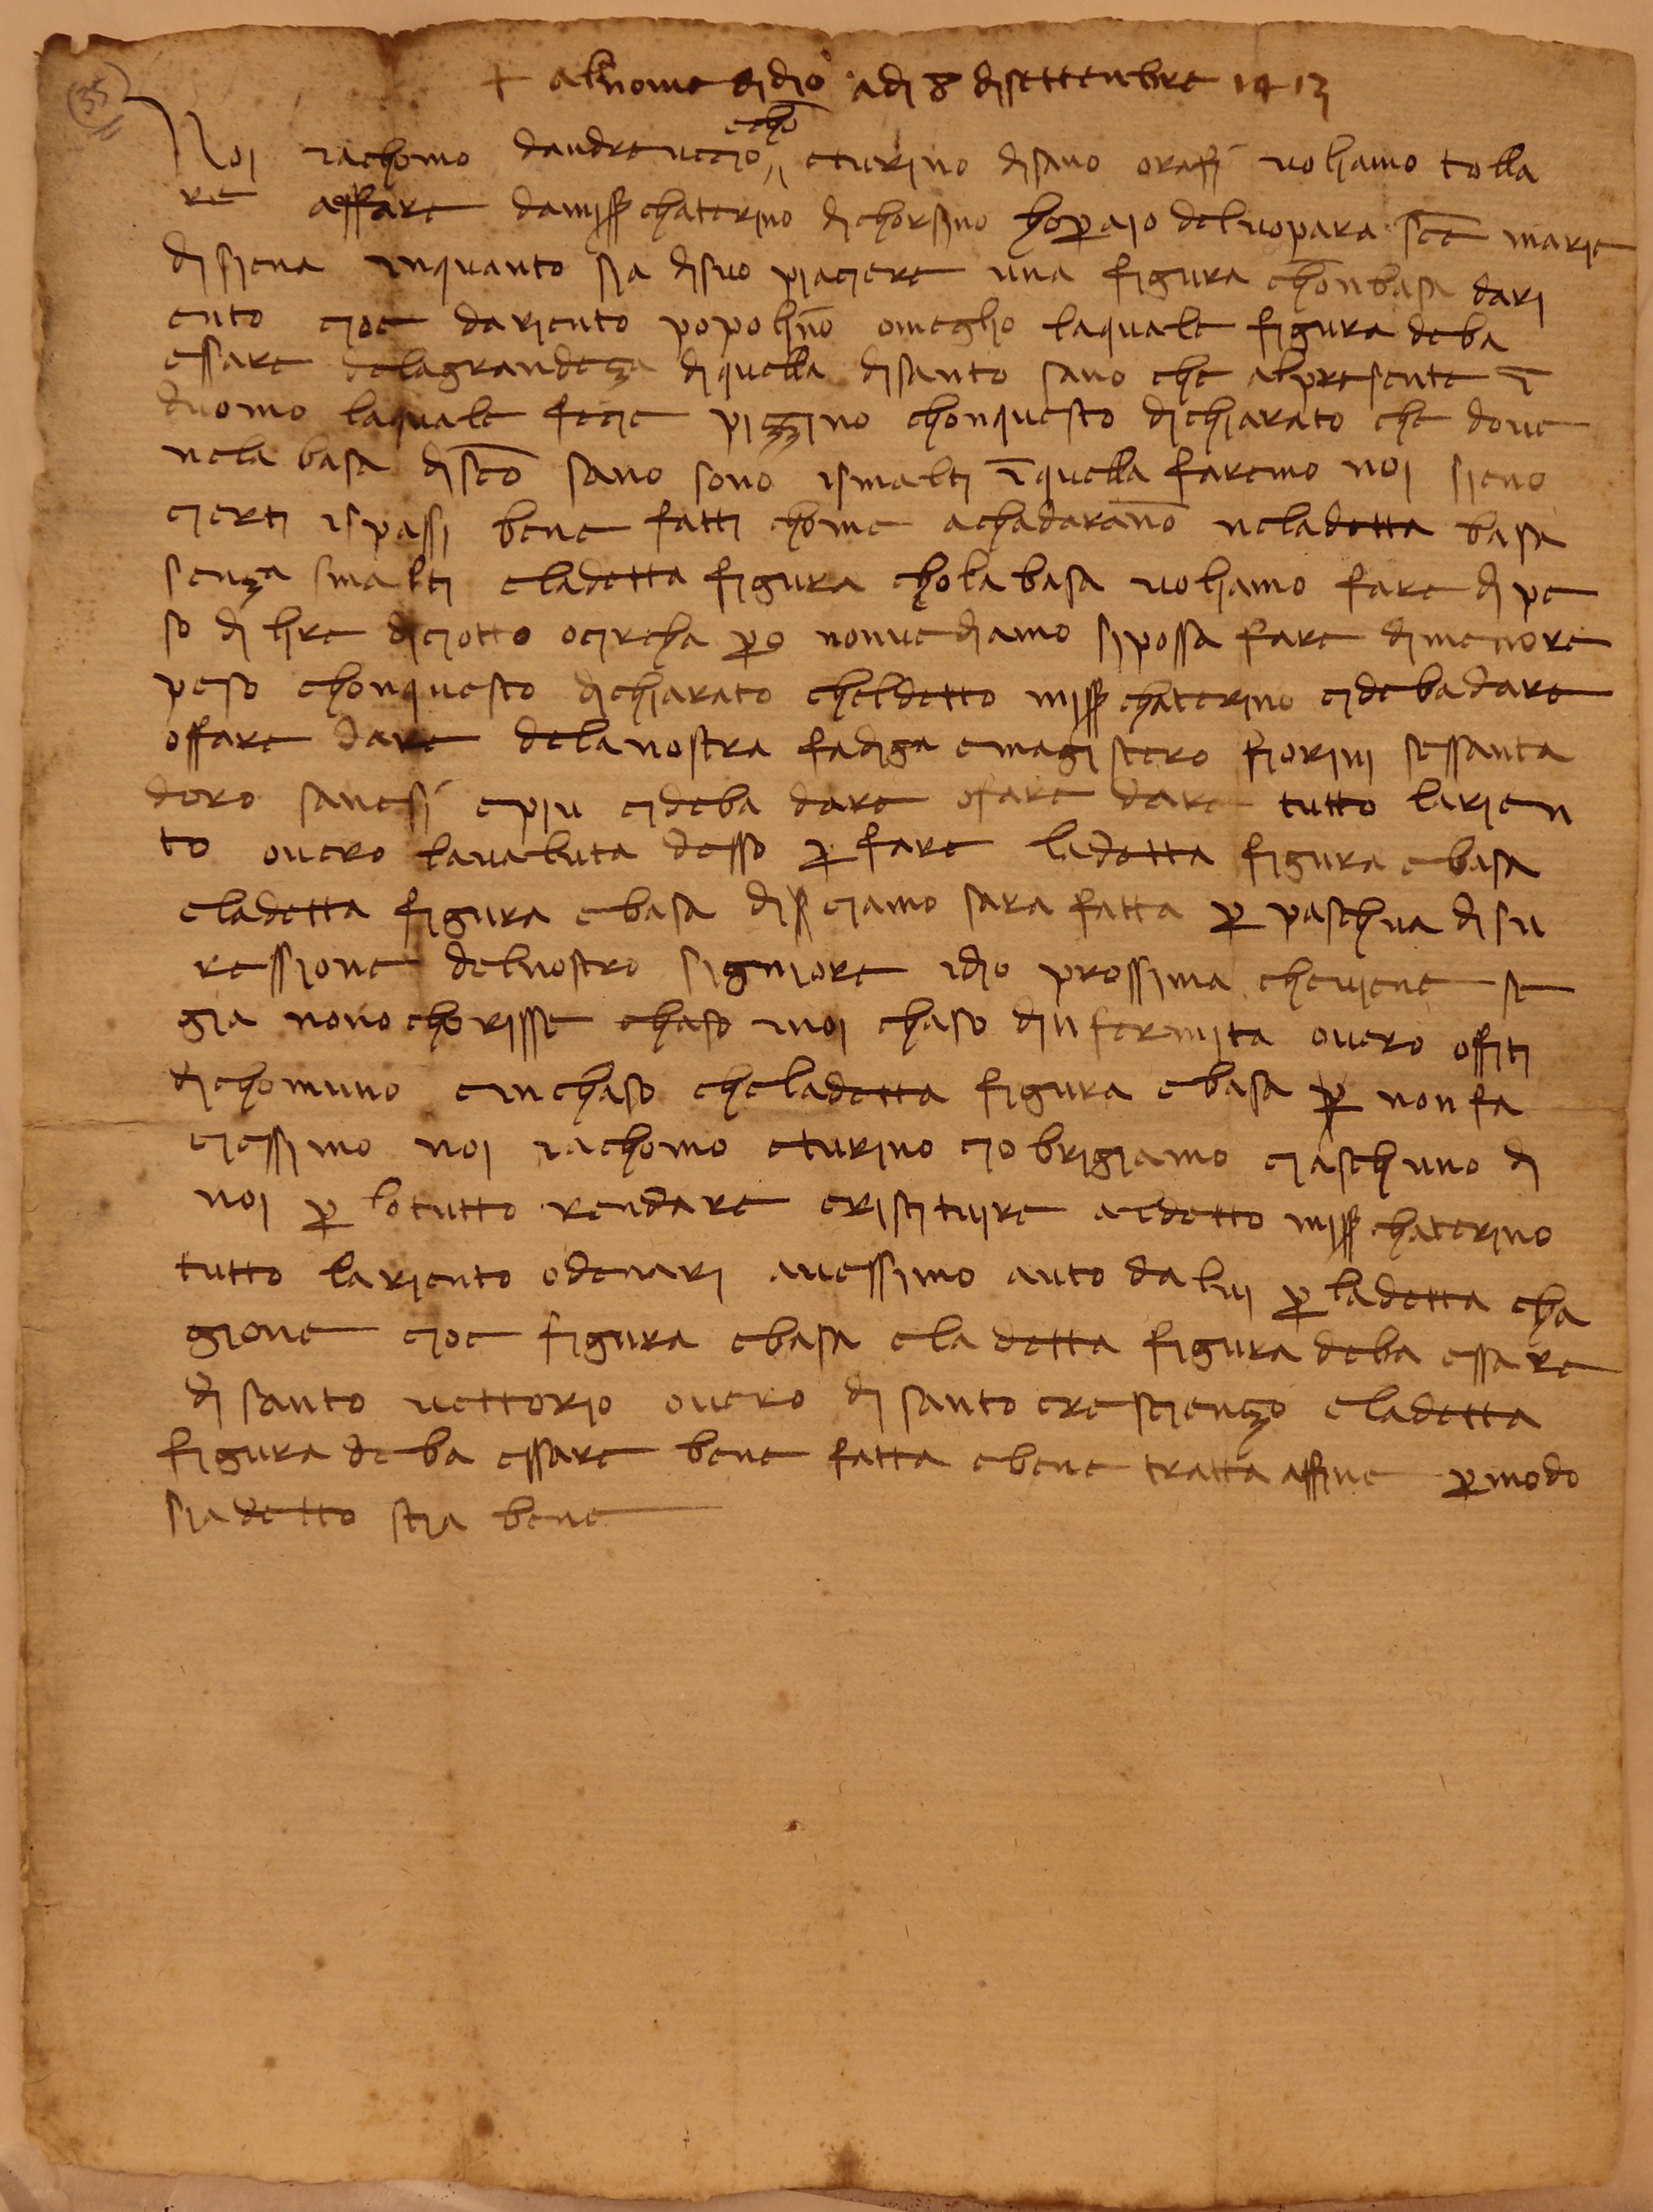 35
+ al nome di dio adi 8 di settenbre 1413
echo
Noi iachomo dandreuccio eturino disano orafi voliamo tolla
re affare damiss chaterino dichorsino hoperaio deluopara sce marie
disiena inquanto sia disuo piaciere una figura chon basa dari
ento cioe dariento popolino omeglio laquale figura deba
essare delagrandeça diquella disanto sano che alpresente ī
duomo laquale fecie piççino chonquesto dichiarato che dove
nela basa disco sano sono ismalti ī quella faremo noi sieno
cierti ispassi bene fatti chome achadarano neladetta basa
sença smalti eladetta figura chola basa voliamo fare di pe
so di lire diciotto ocircha po nonvediamo sipossa fare dimenore
peso chonquesto dichiarato cheldetto miss chaterino cidebadare
offare dare delanostra fadiga emagistero fiorini sessanta
doro sanesi epiu cideba dare ofare dare tutto larien
to overo lavaluta desso p fare ladetta figura ebasa
eladetta figura ebasa disciamo sara fatta p paschua disu
ressione delnostro signiore idio prossima cheviene se
gia nonochorisse chaso inoi chaso dinfermita overo offiti
dichomuno einchaso cheladetta figura ebasa p nonfa
ciessimo noi iachomo eturino ciobrigiamo ciaschuno di
noi p lotutto rendare eristituire aedetto miss chaterino
tutto lariento odenari avessimo auto dalui p ladetta cha
gione cioe figura ebasa ela detta figura deba essare
di santo vettorio overo di santo crescienço eladetta
figura deba essare bene fatta ebene tratta affine p modo
siadetto stia bene